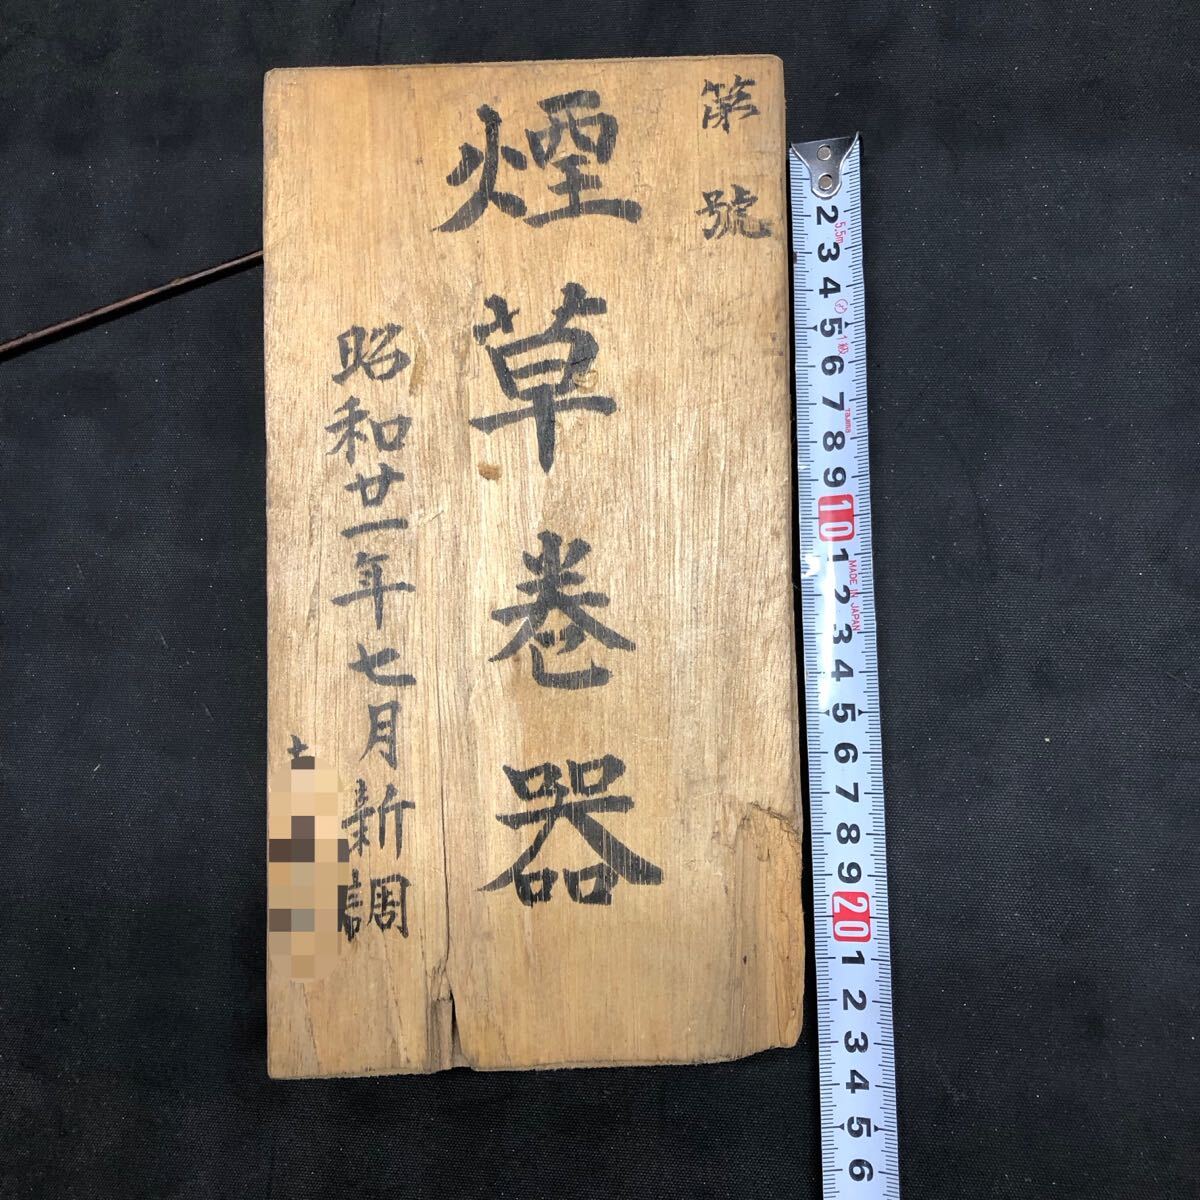 第　號
煙草巻器
昭和廿一年七月新調
2
3
4
5
6
7
8
9
10
1
2
3
4
5
6
7
8
9
20
1
2
3
4
5
6
5.5m
1級
Tajima
MADE IN JAPAN